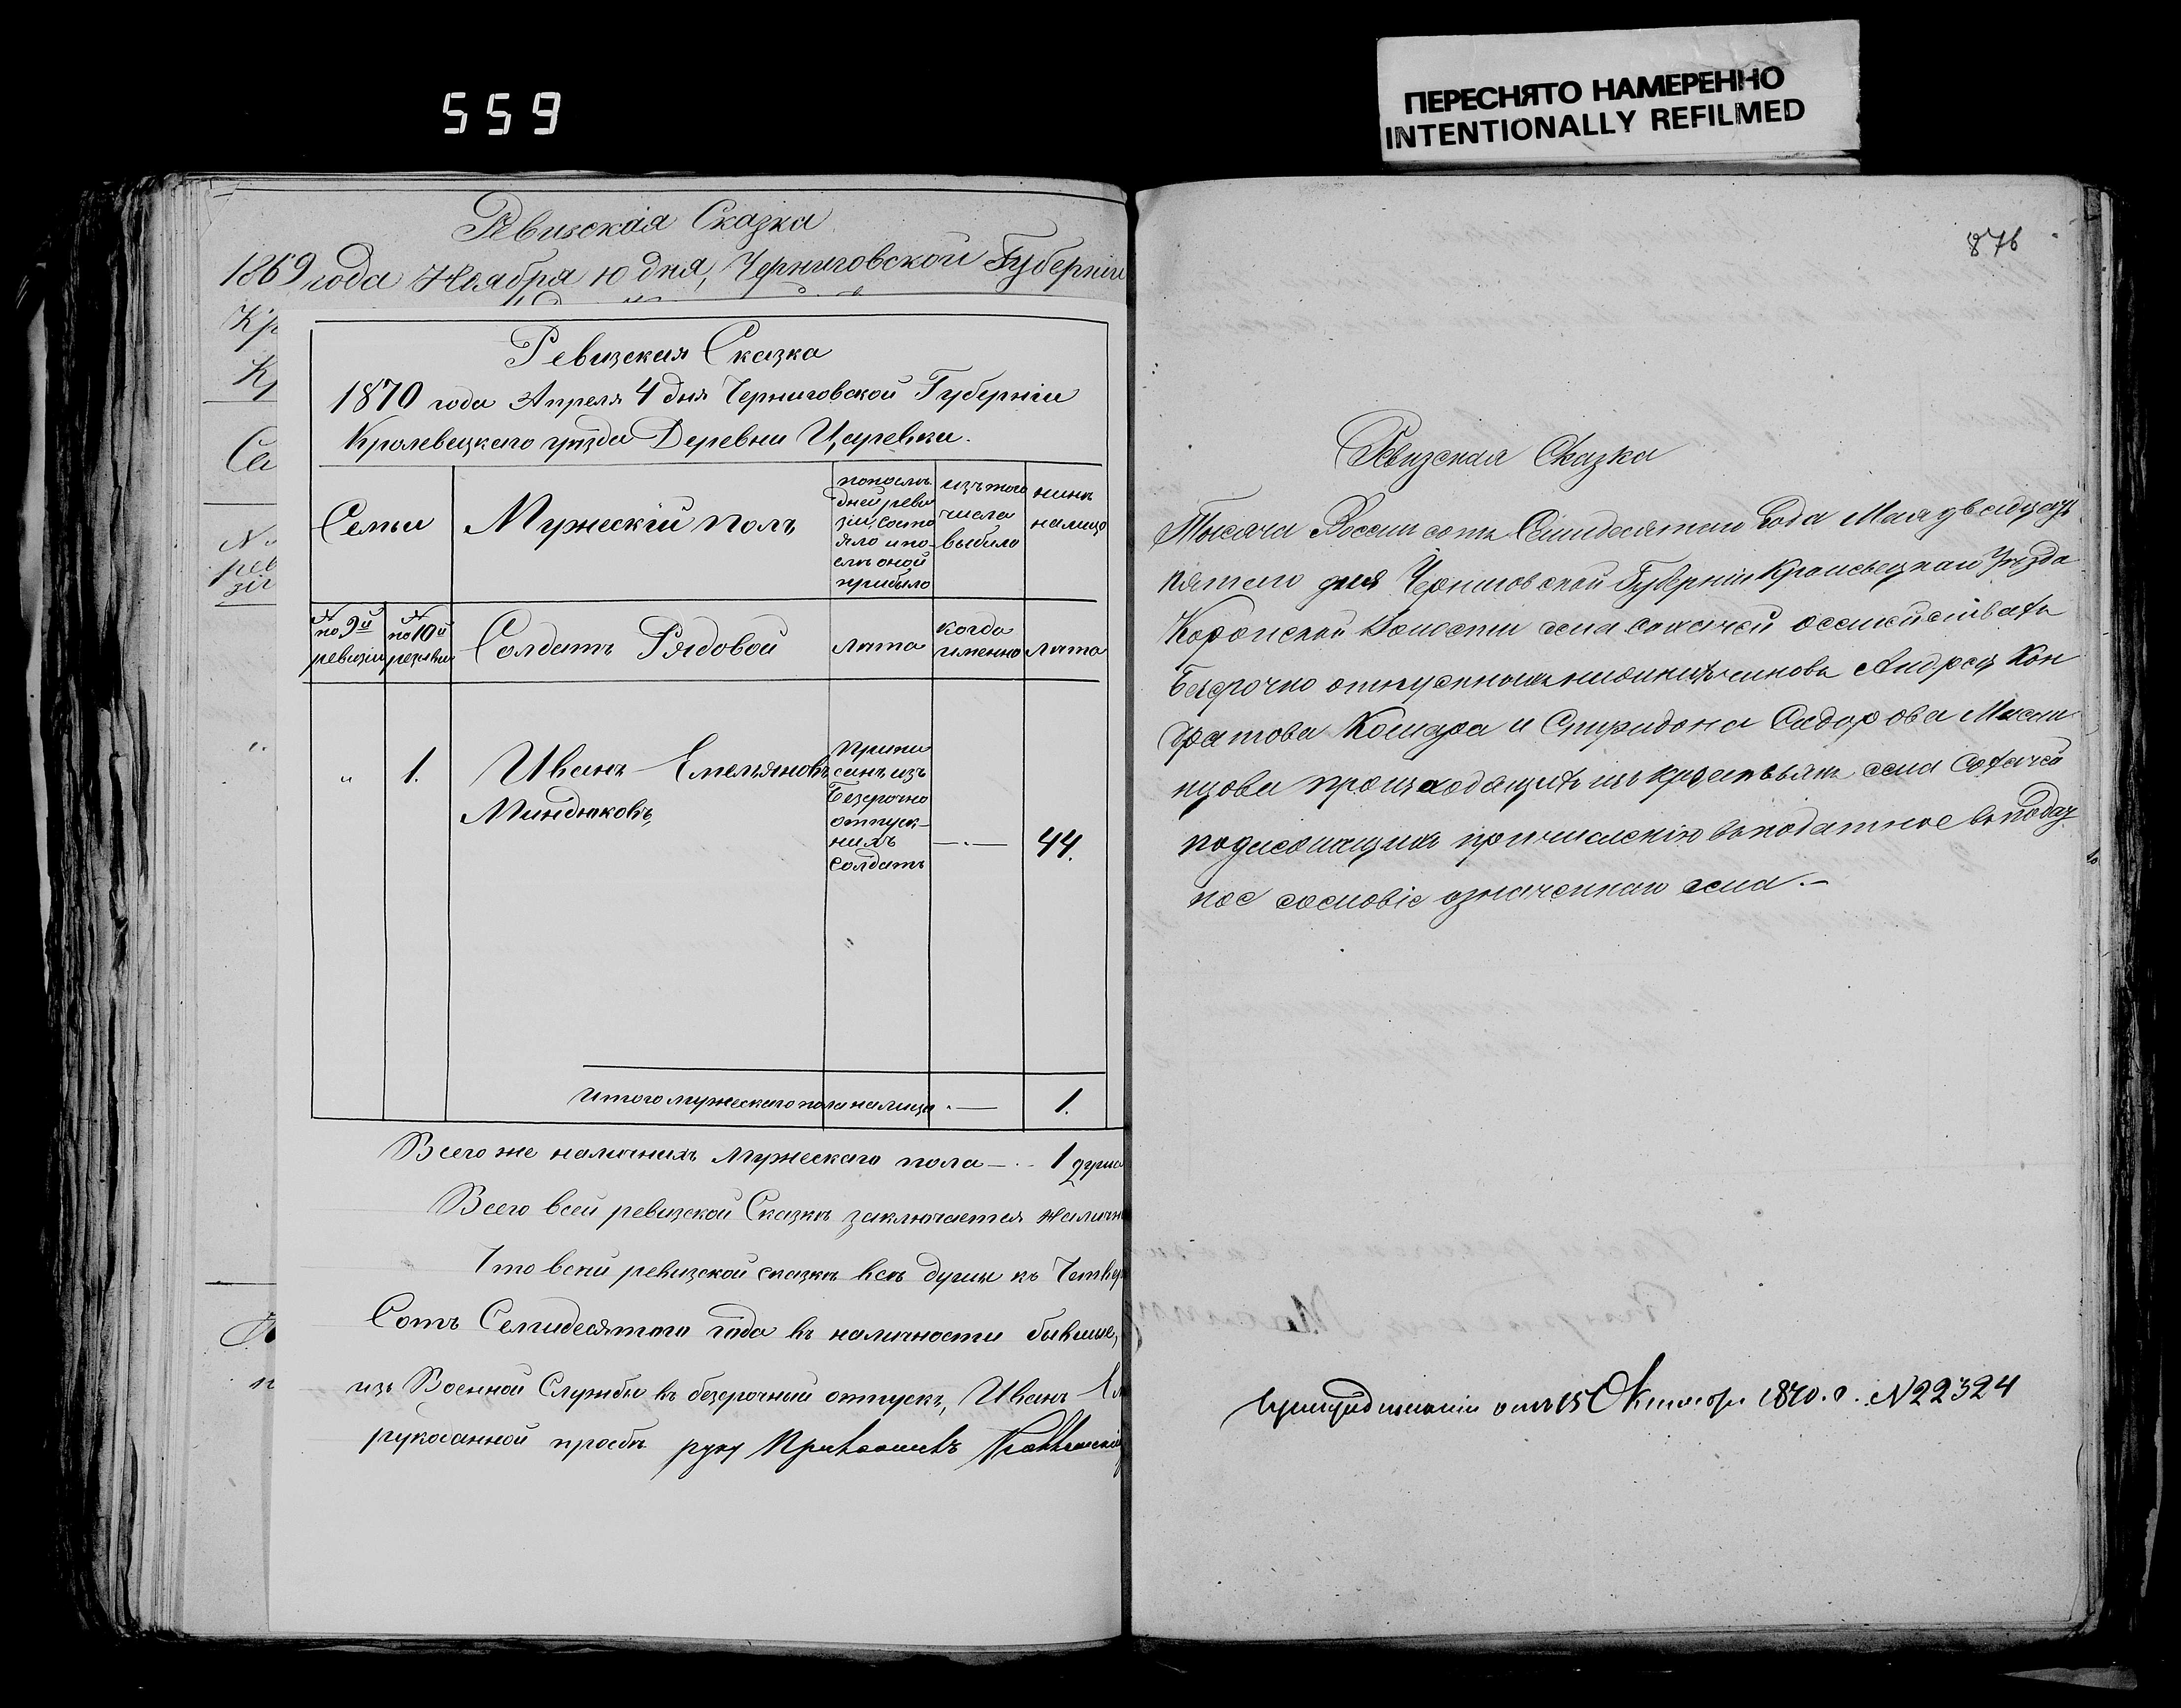 559
ПЕРЕСНЯТО НАМЕРЕННО
INTENTIONALLY REFILMED
Ревизская Сказка
1869 года Ноября 10 дня, Черниговской Губерніи
Кр
Кр
Се
Ревизская Сказка
1870 года Апреля 4 дня Черниговской Губерніи
Кролевецкаго уезда Деревни Царевки.
Семьи
Мужескій полъ
попослѣ
дней реви
зіи состо
яло и по-
слѣ оной
прибыло
изъ того
числа
выбыло
нынѣ
налицо
№ по 9й ревизіи
№ по 10й ревизіи
Солдатъ Рядовой
лета
когда
именно
лета
„ 1.
Иванъ Емельяновъ
Миндюковъ,
припи
санъ изъ
безсрочно
отпуск-
ныхъ
солдатъ
44.
Итого мужескаго пола налицо 1.
Всего же наличныхъ мужескаго пола 1 душа
Всего всей ревизской Сказкѣ заключается налично
Что всей ревизской сказкѣ всѣ души къ Четвер
Сотъ Семидесятого года въ наличности бывшие,
изъ Военной Службы въ безсрочний отпускъ, Иванъ Ем
рукоданной просбѣ руку Приложилъ
876
Ревизская Сказка
Тысяча Восемь сотъ Семидесятого Года Мая двадцать
пятого дня Черниговской Губерніи Кролевецкаго Уѣзда
Коропской Волости села
Безсрочно отпускныхъ нижнихъ чиновъ Андрея Кон
дратова Комара и Спиридона Сидорова Маслы
нцова происходящихъ изъ крестьянъ села
подлежащихъ причисленію въ податное
ное сословіе означеннаго села.-
отъ 15 Октября 1870. г. № 22324